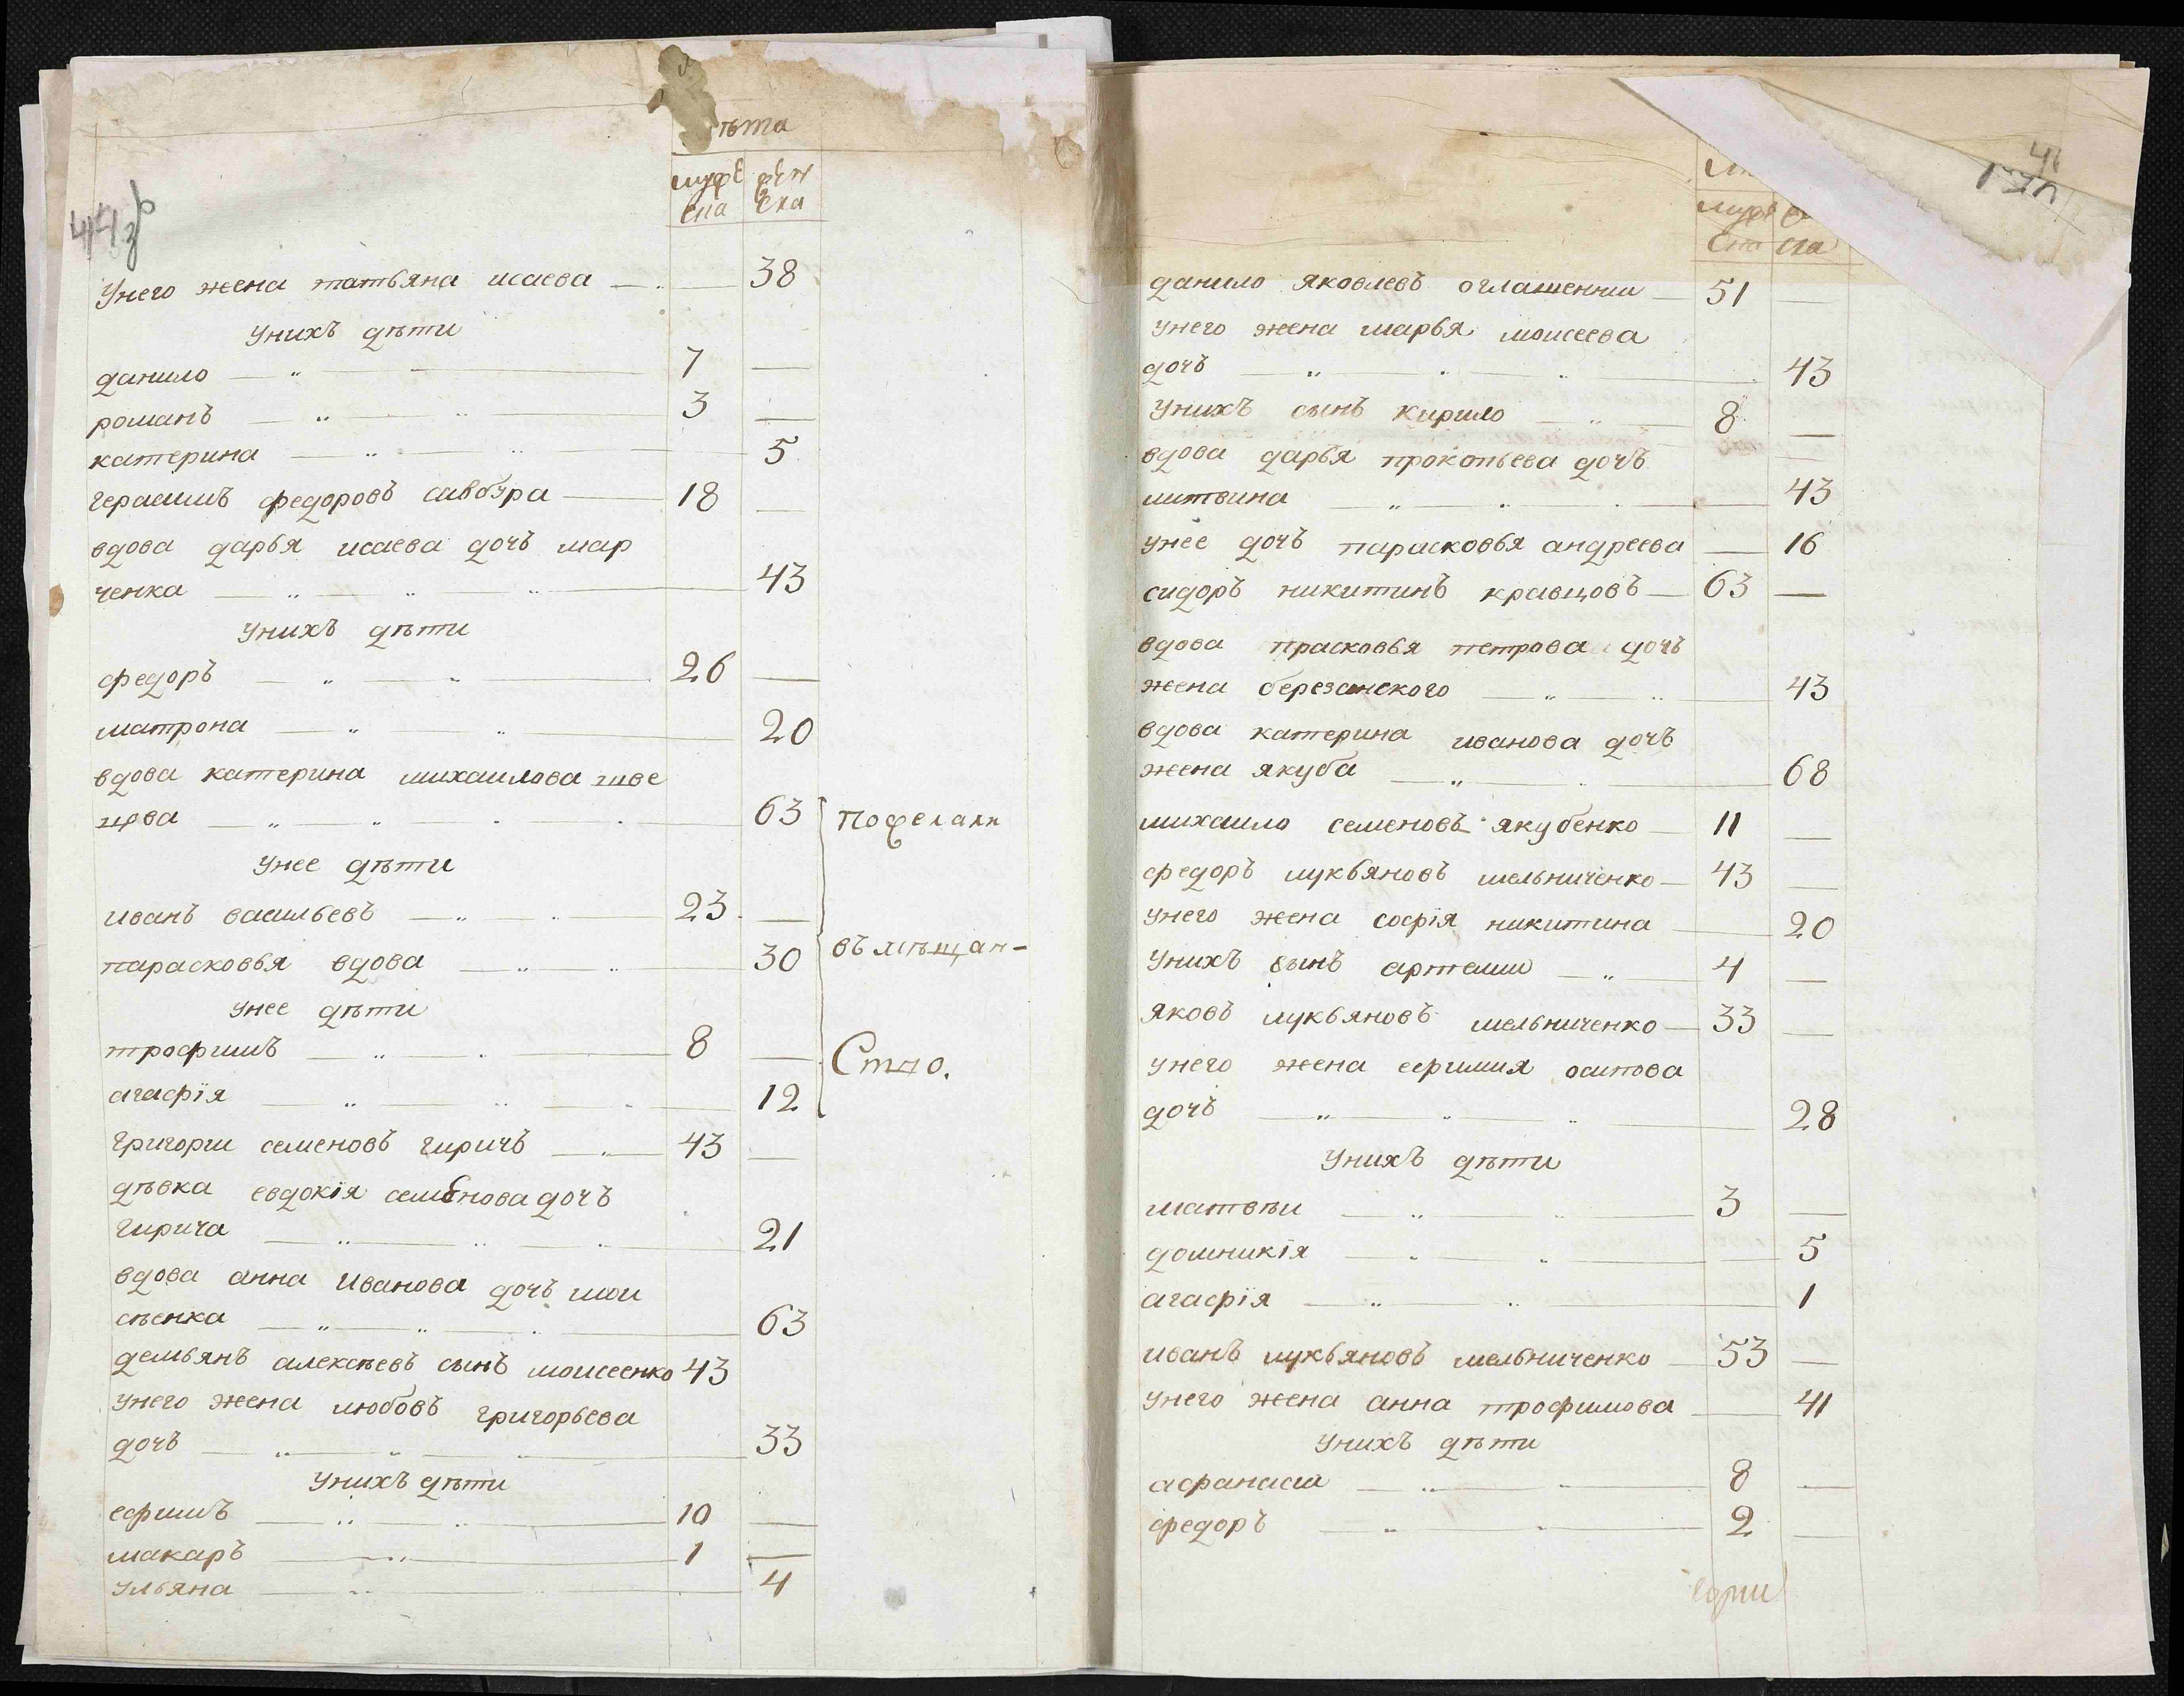 ѣта
мужеска женска
44 зв
Унего жена татьяна исаева 38
Унихъ дѣти
данило 7
романъ 3
катерина 5
герасимъ федоровъ савбура 18
вдова дарья исаева дочь мар
ченка 43
Унихъ дѣти
федоръ 26
матрона 20
вдова катерина михаилова шве
цова 63
Унее дѣти
иванъ васильевъ 23
парасковья вдова 30
унее дѣти
трофимъ 8
агафїя 12
Пожелали
въ мѣщан-
Ство.
григории семеновъ гиричъ 43
дѣвка евдокїя семенова дочъ
гирича 21
вдова анна Иванова дочъ мои
сѣенка 63
демьянъ алексѣевъ сынъ моисеенко 43
унего жена любовъ григорьева
дочъ 33
Унихъ дѣти
ефимъ 10
макаръ 1
ульяна 4
данило яковлевъ оглашенни 51
унего жена марья моисеева
дочъ 43
Унихъ сынъ кирило 8
вдова дарья прокопьева дочъ
литвина 43
унее дочъ парасковья андреева 16
сидоръ никитинъ кравцовъ 63
вдова прасковья петрова дочъ
жена березанского 43
вдова катерина иванова дочъ
жена якуба 68
михаило семеновъ якубенко 11
федоръ лукьяновъ мельниченко 43
унего жена софїя никитина 20
Унихъ сынъ артемии 4
яковъ лукьяновъ мельниченко 33
унего жена ефимия осипова
дочъ 28
Унихъ дѣти
матвѣи 3
домникїя 5
агафїя 1
иванъ лукьяновъ мельниченко 53
унего жена анна трофимова 41
Унихъ дѣти
афанасии 8
федоръ 2